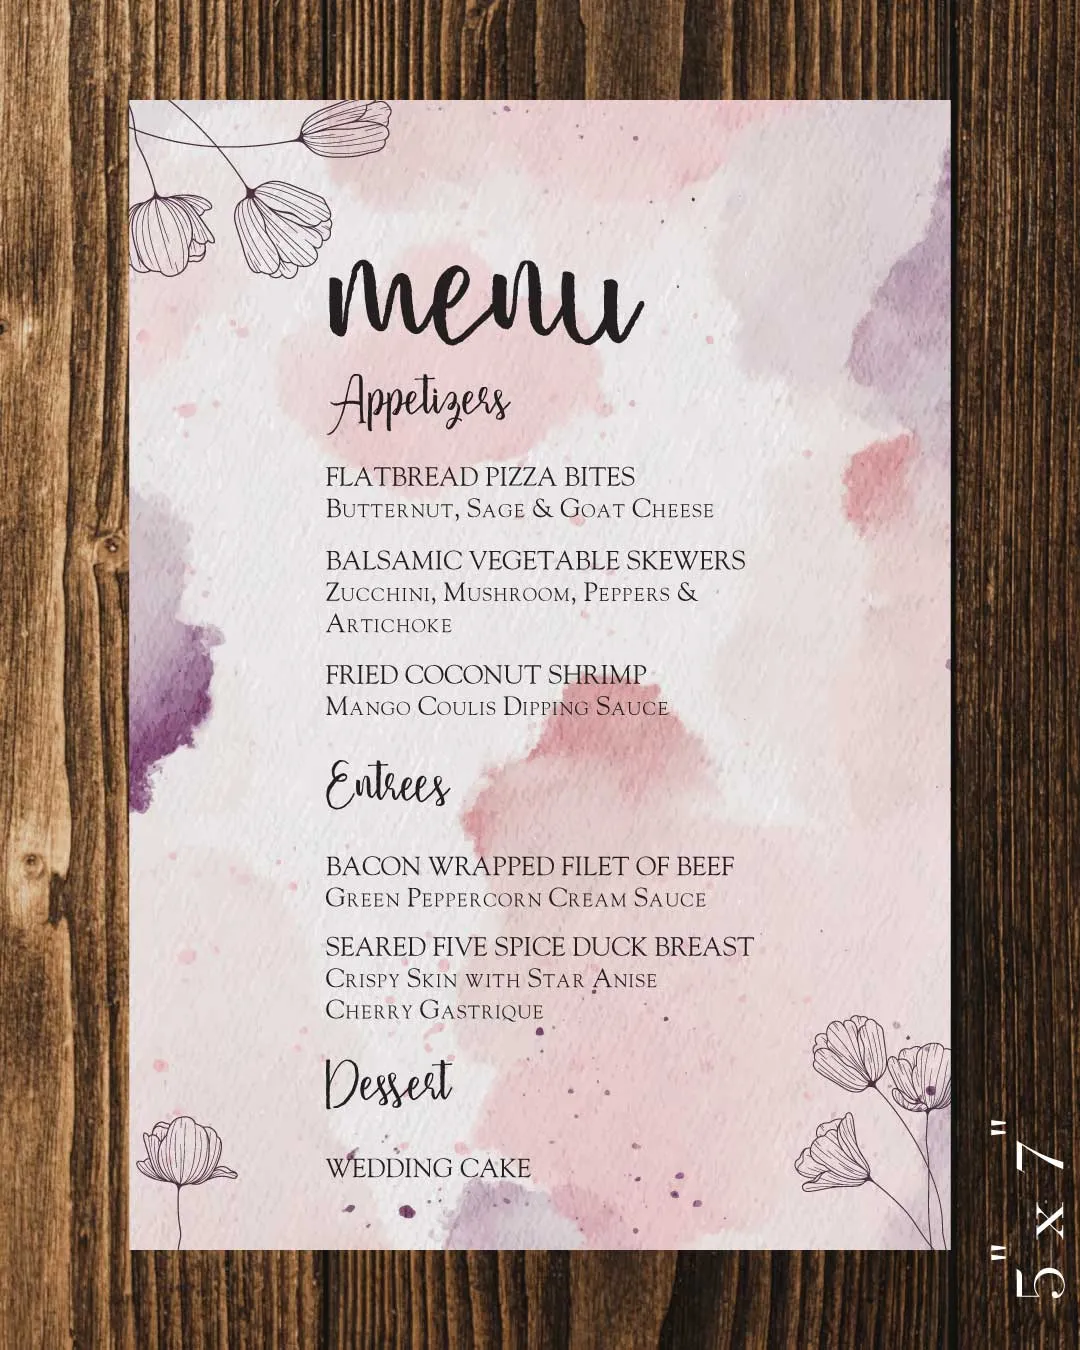 menu
Appetizers
FLATBREAD PIZZA BITES
Butternut, Sage & Goat Cheese
BALSAMIC VEGETABLE SKEWERS
Zucchini, Mushroom, Peppers &
Artichoke
FRIED COCONUT SHRIMP
Mango Coulis Dipping Sauce
Entrees
BACON WRAPPED FILET OF BEEF
Green Peppercorn Cream Sauce
SEARED FIVE SPICE DUCK BREAST
Crispy Skin with Star Anise
Cherry Gastrique
Dessert
WEDDING CAKE
5" x 7"